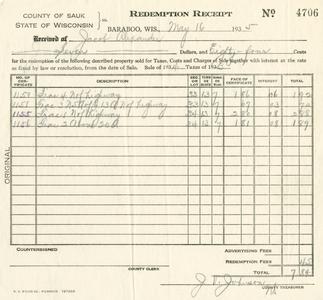 COUNTY OF SAUK
STATE OF WISCONSIN
REDEMPTION RECEIPT
No 4706
BARABOO, WIS., May 16 1935
Received of Jacob Alexander
Seven Dollars, and Eighty-four Cents
for the redemption of the following described property sold for Taxes, Costs and Charges of Sale together with interest at the rate
as fixed by law or resolution, from the date of Sale. Sale of 193 Taxes of 192
NO. OF CERTIFICATE DESCRIPTION SEC OR LOT FACE OF CERTIFICATE INTEREST AMOUNT
1151 Frac 4 N of highway 23 13 7 1 86 06 1 92
1151 N of highway 13 7
1155 Frac 1 N of highway 24 13 7 2 80 08 2 88
1156 Frac 2 24 13 7 1 81 08 1 89
ORIGINAL
COUNTERSIGNED
ADVERTISING FEES
REDEMPTION FEES
COUNTY CLERK
7 84
J. V. Johnson
COUNTY TREASURER